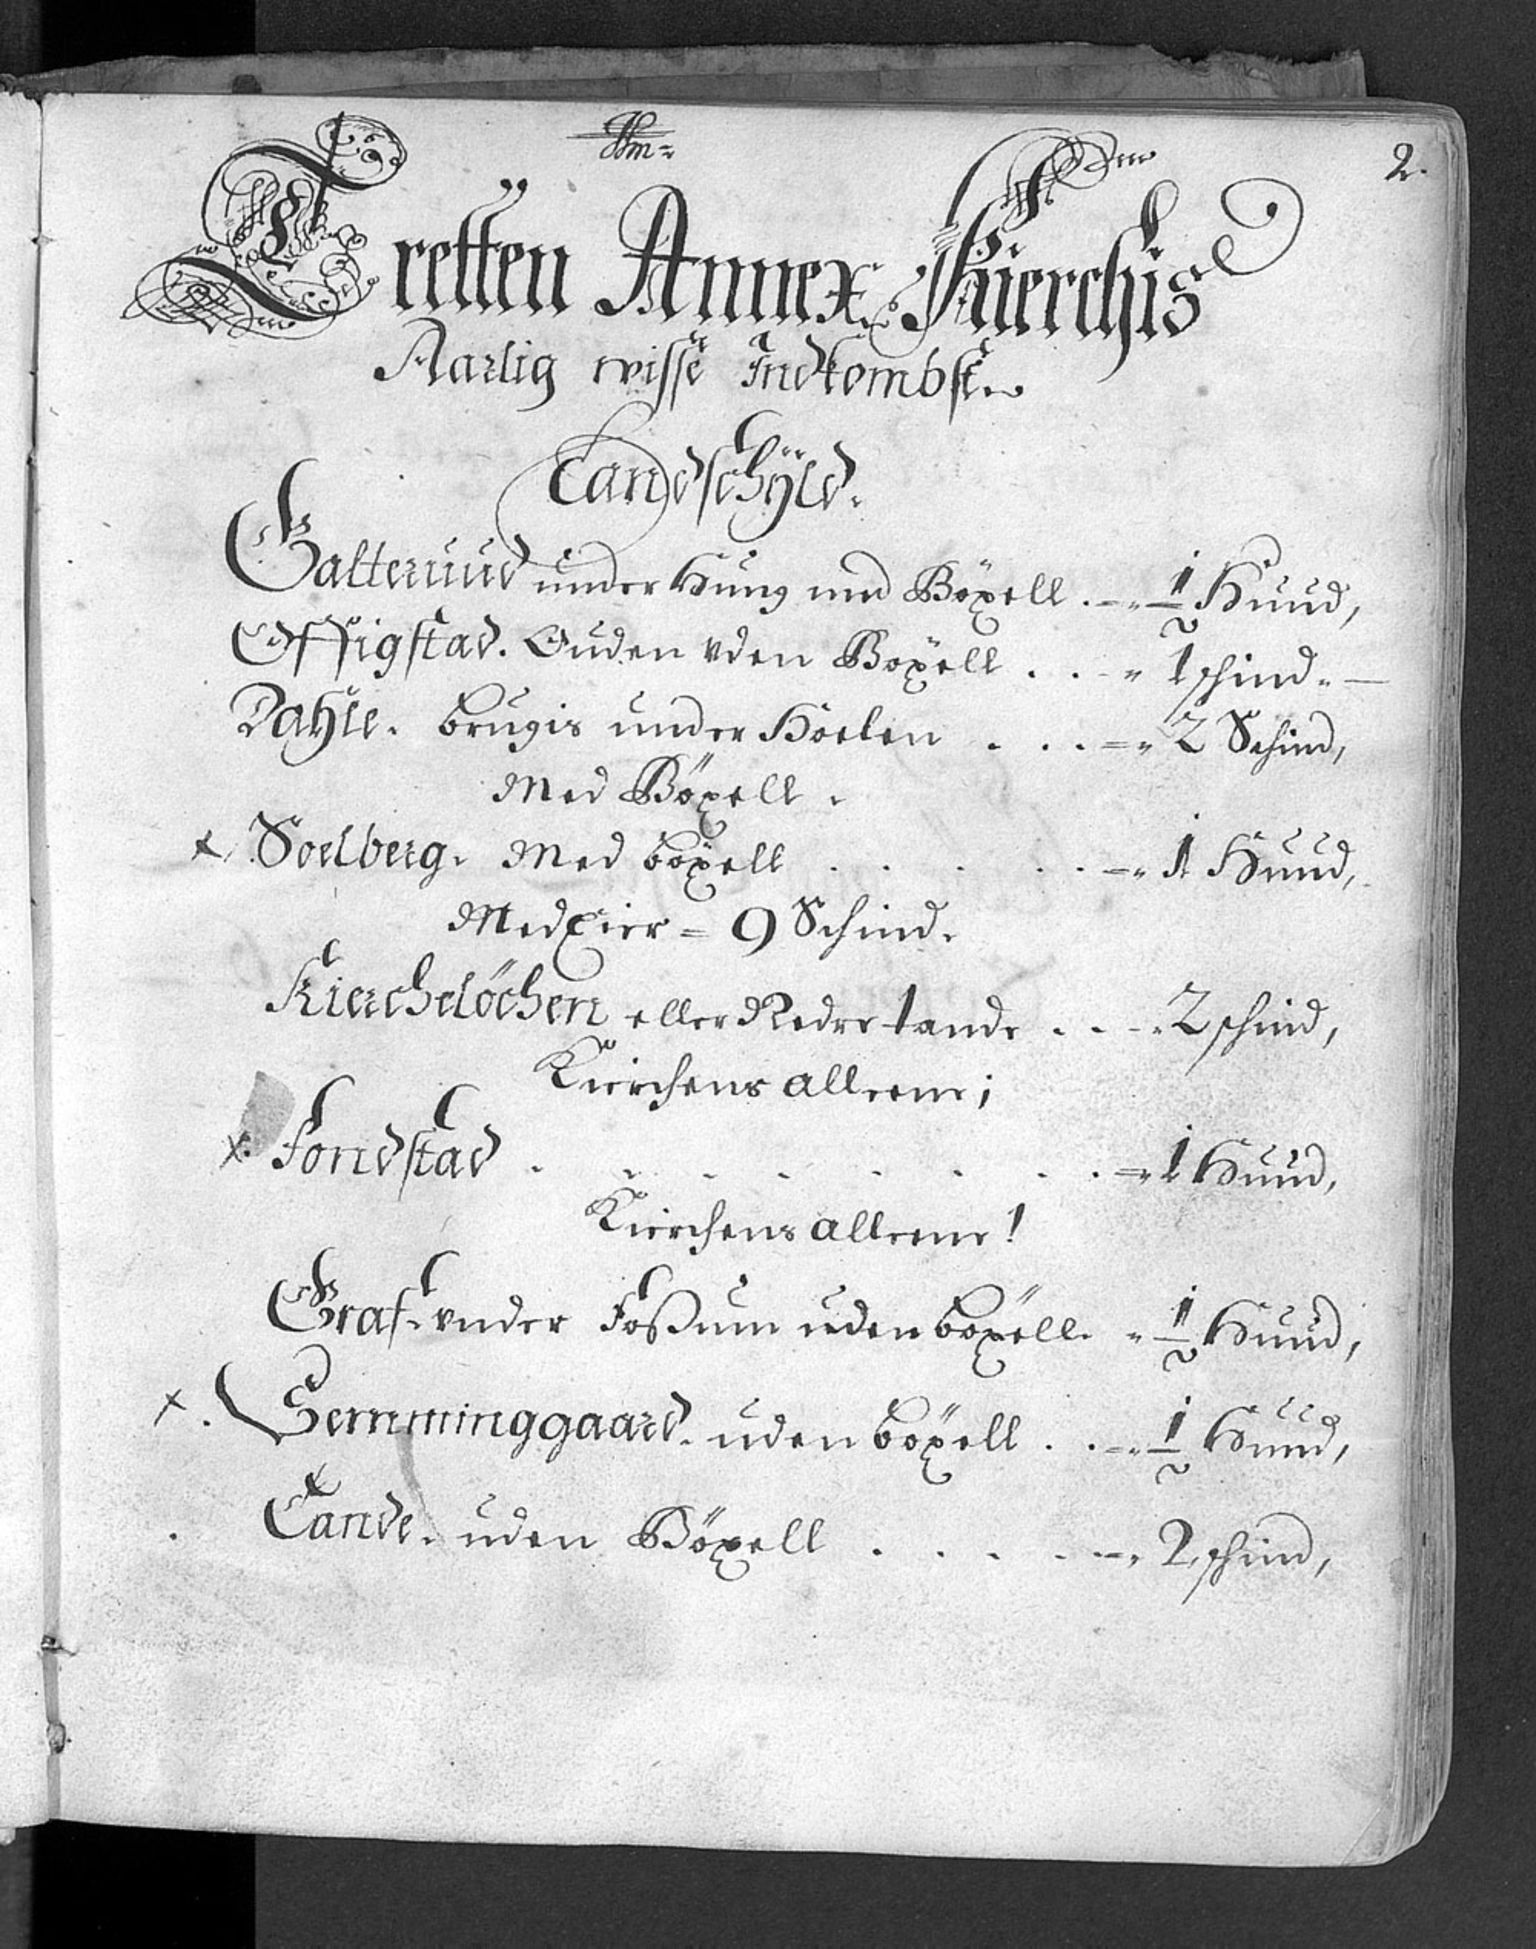 2.
Tretten Annex Kierchis
Aarlig wisse Indkombst
Landschÿld.
Galteruud under Hung med Böxell . 1/2 Huud,
Offigstad. Ouden uden Boxell . . 1 schind.
Dahle. brugis under Hoelen . . . 2 Schind,
Med Böxell.
x Soelberg. Med böxell . . . . . 1 Huud,
Medeier = 9 Schind.
Kierchelöchen eller Rederlande . . 2 schind,
Kirchens alleene;
x. Fondstad . . . . . . . . 1 Huud,
Kirchens alleene!
Graf. under Fossum uden böxell. 1/2 Huud,
x. Semminggaard. uden böxell . . 1/2 Huud,
Lande. uden Böxell . . . . 2 schind,